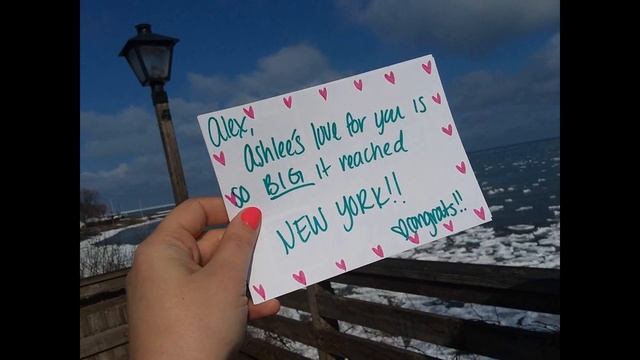 Alex,
Ashlee's love for you is
so BIG it reached
NEW YORK!!
congrats!!